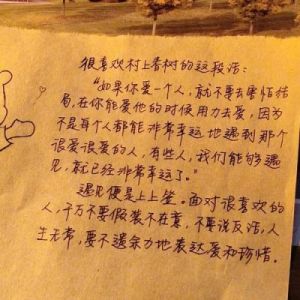 很喜欢村上春树的这段话：
“如果你爱一个人，就不要去害怕结
局，在你能爱他的时候用力去爱，因为
不是每个人都能非常幸运地遇到那个
很爱很爱的人，有些人，我们能够遇
见，就已经非常幸运了。”
遇见便是上上签。面对很喜欢的
人，千万不要假装不在意，不要说反话，人
生无常，要不遗余力地表达爱和珍惜。